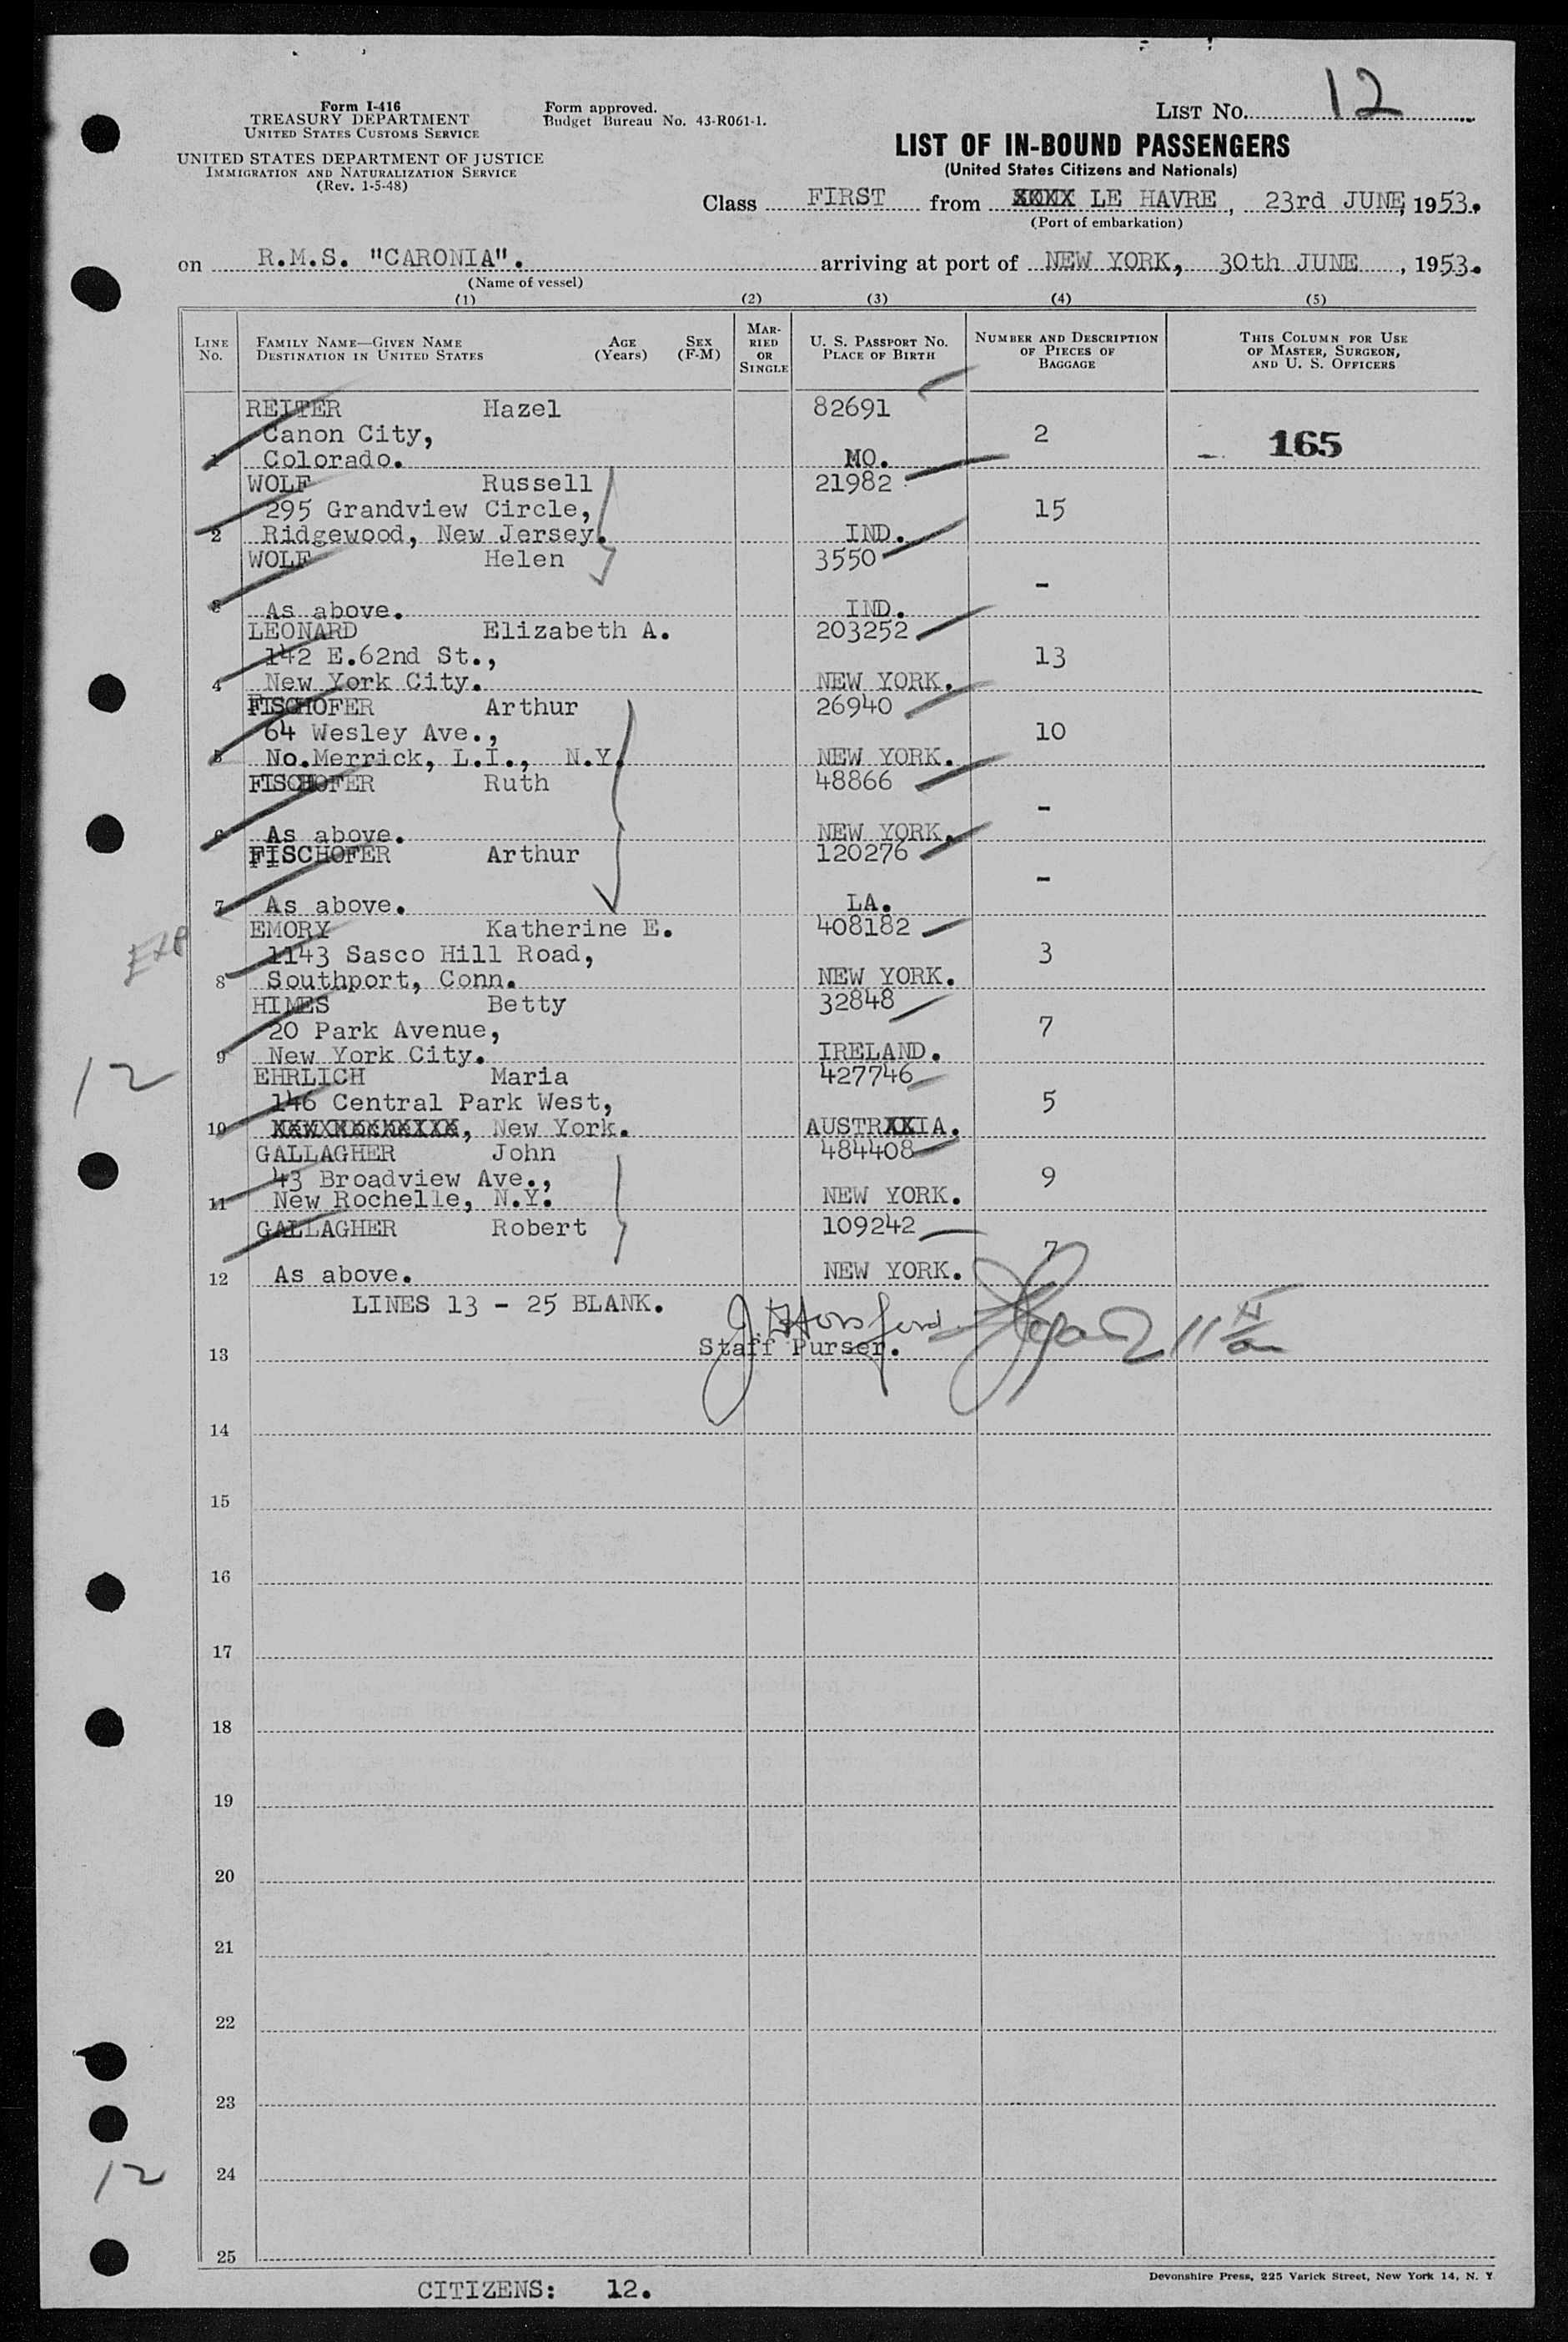 Form I-416
TREASURY DEPARTMENT
UNITED STATES CUSTOMS SERVICE
UNITED STATES DEPARTMENT OF JUSTICE
IMMIGRATION AND NATURALIZATION SERVICE
(Rev. 1-5-48)
Form approved.
Budget Bureau No. 43-R061-1.
LIST NO. 12
LIST OF IN-BOUND PASSENGERS
(United States Citizens and Nationals)
Class FIRST from XXXX LE HAVRE, 23rd JUNE, 1953.
(Port of embarkation)
on R.M.S. "CARONIA". arriving at port of NEW YORK, 30th JUNE, 1953.
(Name of vessel)
(1) (2) (3) (4) (5)
LINE No.
FAMILY NAME—GIVEN NAME
DESTINATION IN UNITED STATES
AGE (Years)
SEX (F-M)
MARRIED OR SINGLE
U. S. PASSPORT NO.
PLACE OF BIRTH
NUMBER AND DESCRIPTION OF PIECES OF BAGGAGE
THIS COLUMN FOR USE OF MASTER, SURGEON, AND U. S. OFFICERS
REITER Hazel 82691
Canon City, 2 165
1 Colorado. MO.
WOLF Russell 21982
295 Grandview Circle, 15
2 Ridgewood, New Jersey. IND.
WOLF Helen 3550
-
3 As above. IND.
LEONARD Elizabeth A. 203252
142 E.62nd St., 13
4 New York City. NEW YORK.
FISCHOFER Arthur 26940
64 Wesley Ave., 10
5 No.Merrick, L.I., N.Y. NEW YORK.
FISCHOFER Ruth 48866
-
6 As above. NEW YORK.
FISCHOFER Arthur 120276
-
7 As above. LA.
EMORY Katherine E. 408182
1143 Sasco Hill Road, 3
8 Southport, Conn. NEW YORK.
HIMES Betty 32848
20 Park Avenue, 7
9 New York City. IRELAND.
12
EHRLICH Maria 427746
146 Central Park West, 5
10 , New York. AUSTRXXIA.
GALLAGHER John 484408
43 Broadview Ave., 9
11 New Rochelle, N.Y. NEW YORK.
GALLAGHER Robert 109242
7
12 As above. NEW YORK.
LINES 13 - 25 BLANK.
Staff Purser.
13
14
15
16
17
18
19
20
21
22
23
24
12
25
Devonshire Press, 225 Varick Street, New York 14, N. Y.
CITIZENS: 12.